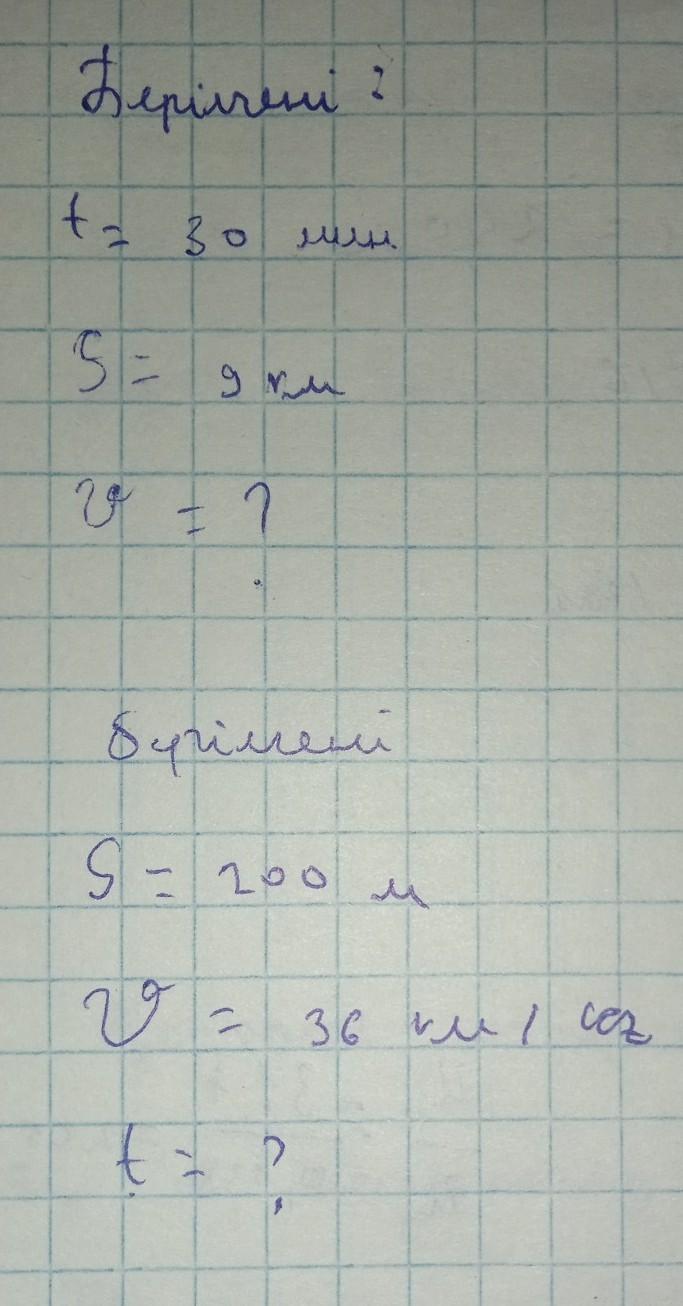 Берілгені:
t = 30 мин
S = 9 км
v = ?
Берілгені
S = 200 м
v = 36 км / сағ
t = ?